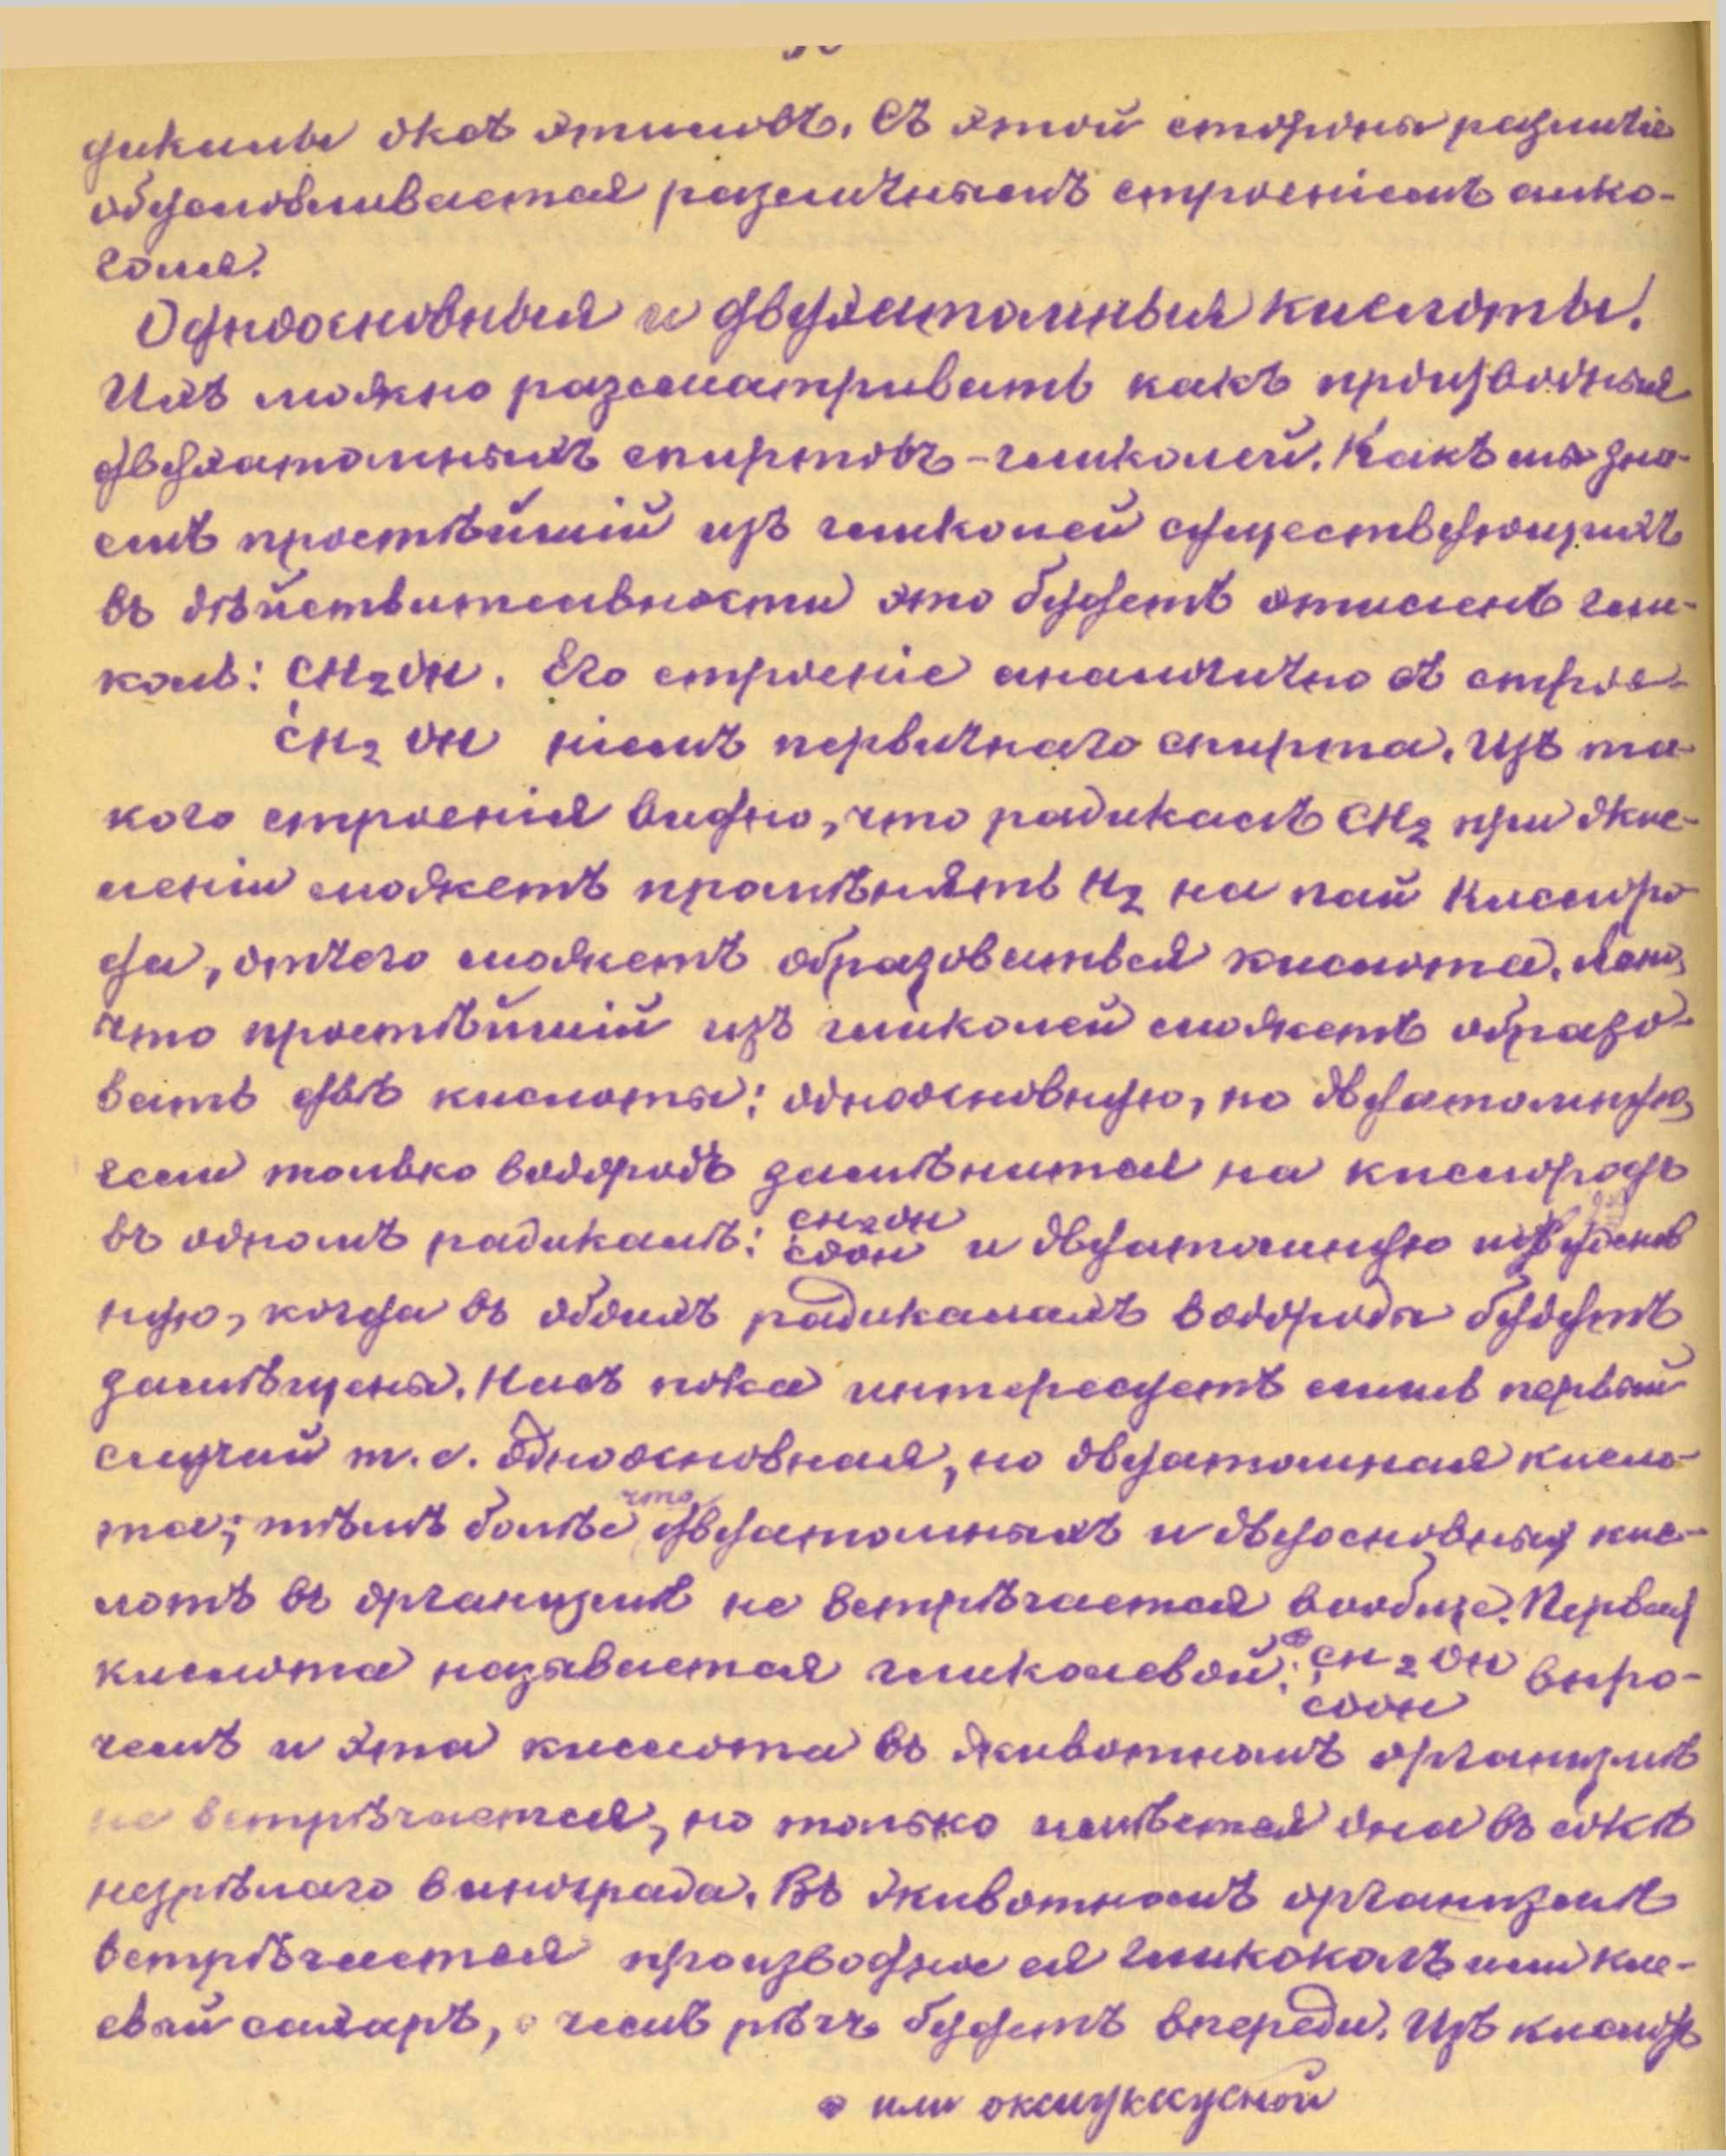 дикалы окс этиловъ. Съ этой стороны различіе
обусловливается различнымъ строеніемъ алко-
голя.
Одноосновныя и двухатомныя кислоты.
Ихъ можно разсматривать какъ производныя
двухатомныхъ спиртовъ - гликолей. Какъ мы зна-
емъ простѣйшій изъ гликолей существующихъ
въ дѣйствительности это будетъ этиленъ гли-
коль: CH₂OH. Его строеніе аналогично съ строе-
CH₂OH ніемъ первичнаго спирта. Изъ та-
кого строенія видно, что радикалъ CH₂ при окис-
леніи можетъ промѣнять H₂ на пай кислоро-
да, отчего можетъ образоваться кислота. Ясно,
что простѣйшій изъ гликолей можетъ образо-
вать двѣ кислоты: одноосновную, но двуатомную,
если только водородъ замѣнится на кислородъ
въ одномъ радикалѣ: CH₂OH COOH и двуатомную и двуоснов
ную, когда въ обоихъ радикалахъ водороды будутъ
замѣщены. Насъ пока интересуетъ лишь первый
случай т.е. одноосновная, но двуатомная кисло-
та; тѣмъ болѣе что двуатомныхъ и двуосновныхъ кис-
лотъ въ организмѣ не встрѣчается вообще. Первая
кислота называется гликолевой: CH₂OH COOH впро-
чемъ и эта кислота въ животномъ организмѣ
не встрѣчается, но только имѣется она въ сокѣ
незрѣлаго винограда. Въ животномъ организмѣ
встрѣчается производное ея гликоколъ или кле-
евой сахаръ, о чемъ рѣчь будетъ впереди. Изъ кислотъ
или оксиуксусной